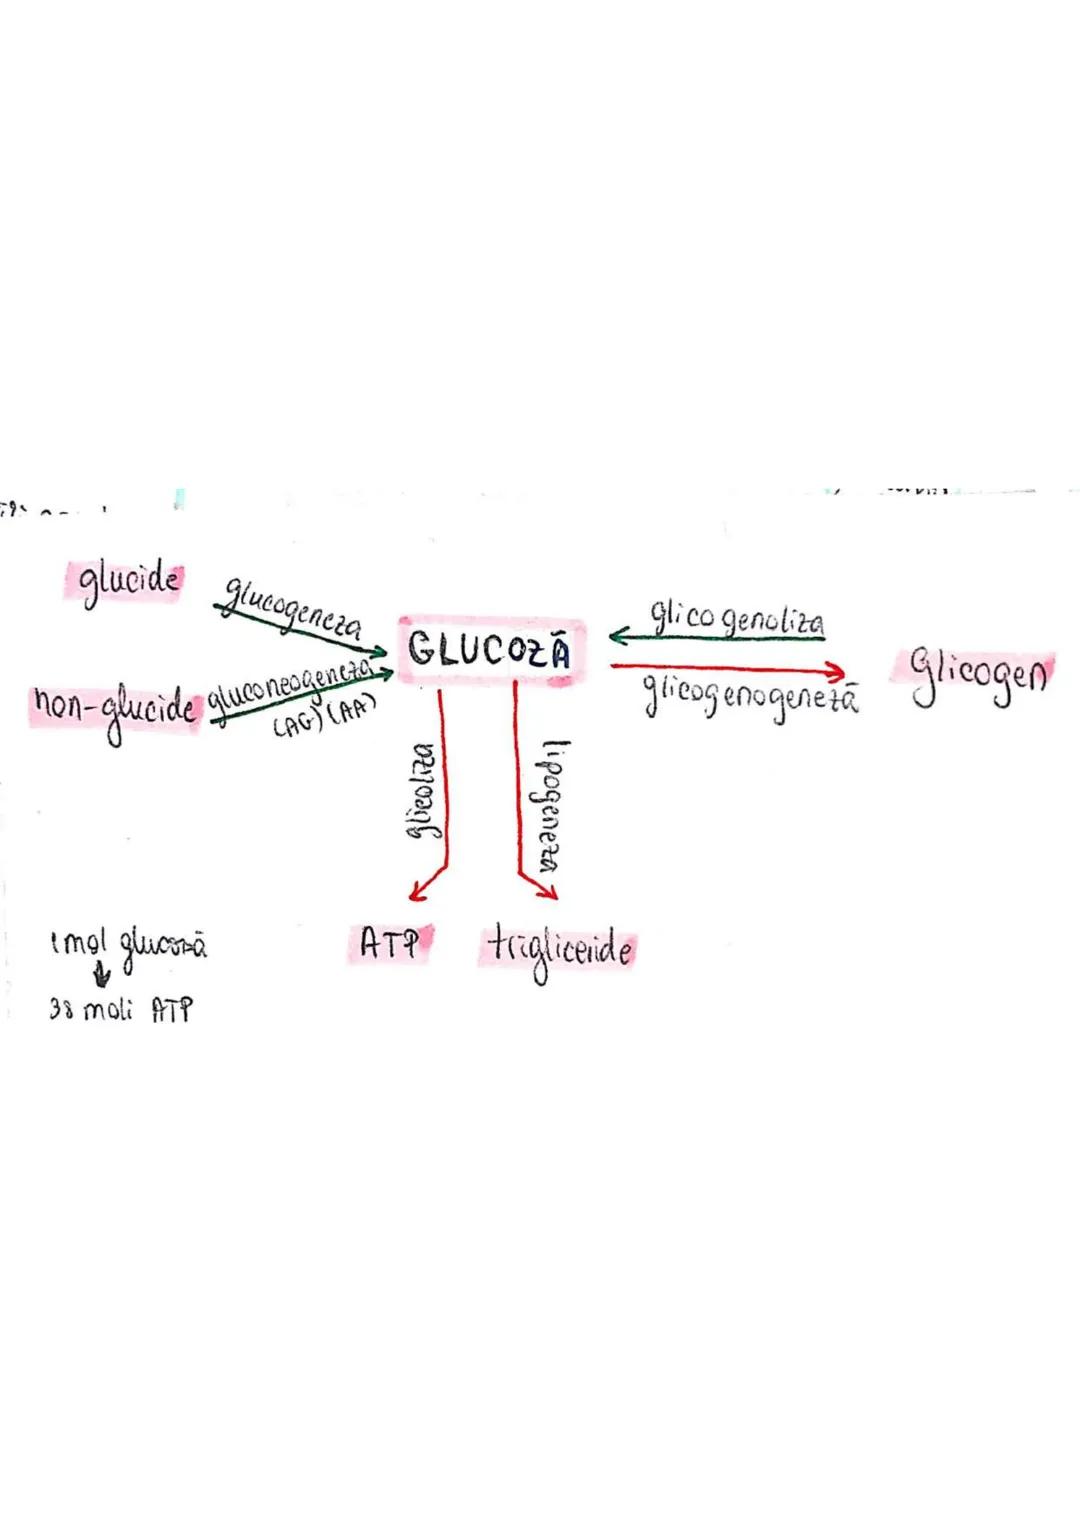 glucide
glucogeneza
GLUCOZĂ
glicogenoliza
Glicogen
non-glucide
gluconeogeneza
(AG) (AA)
glicogenogeneză
glicoliza
lipogeneza
ATP
trigliceride
1 mol glucoză
38 moli ATP